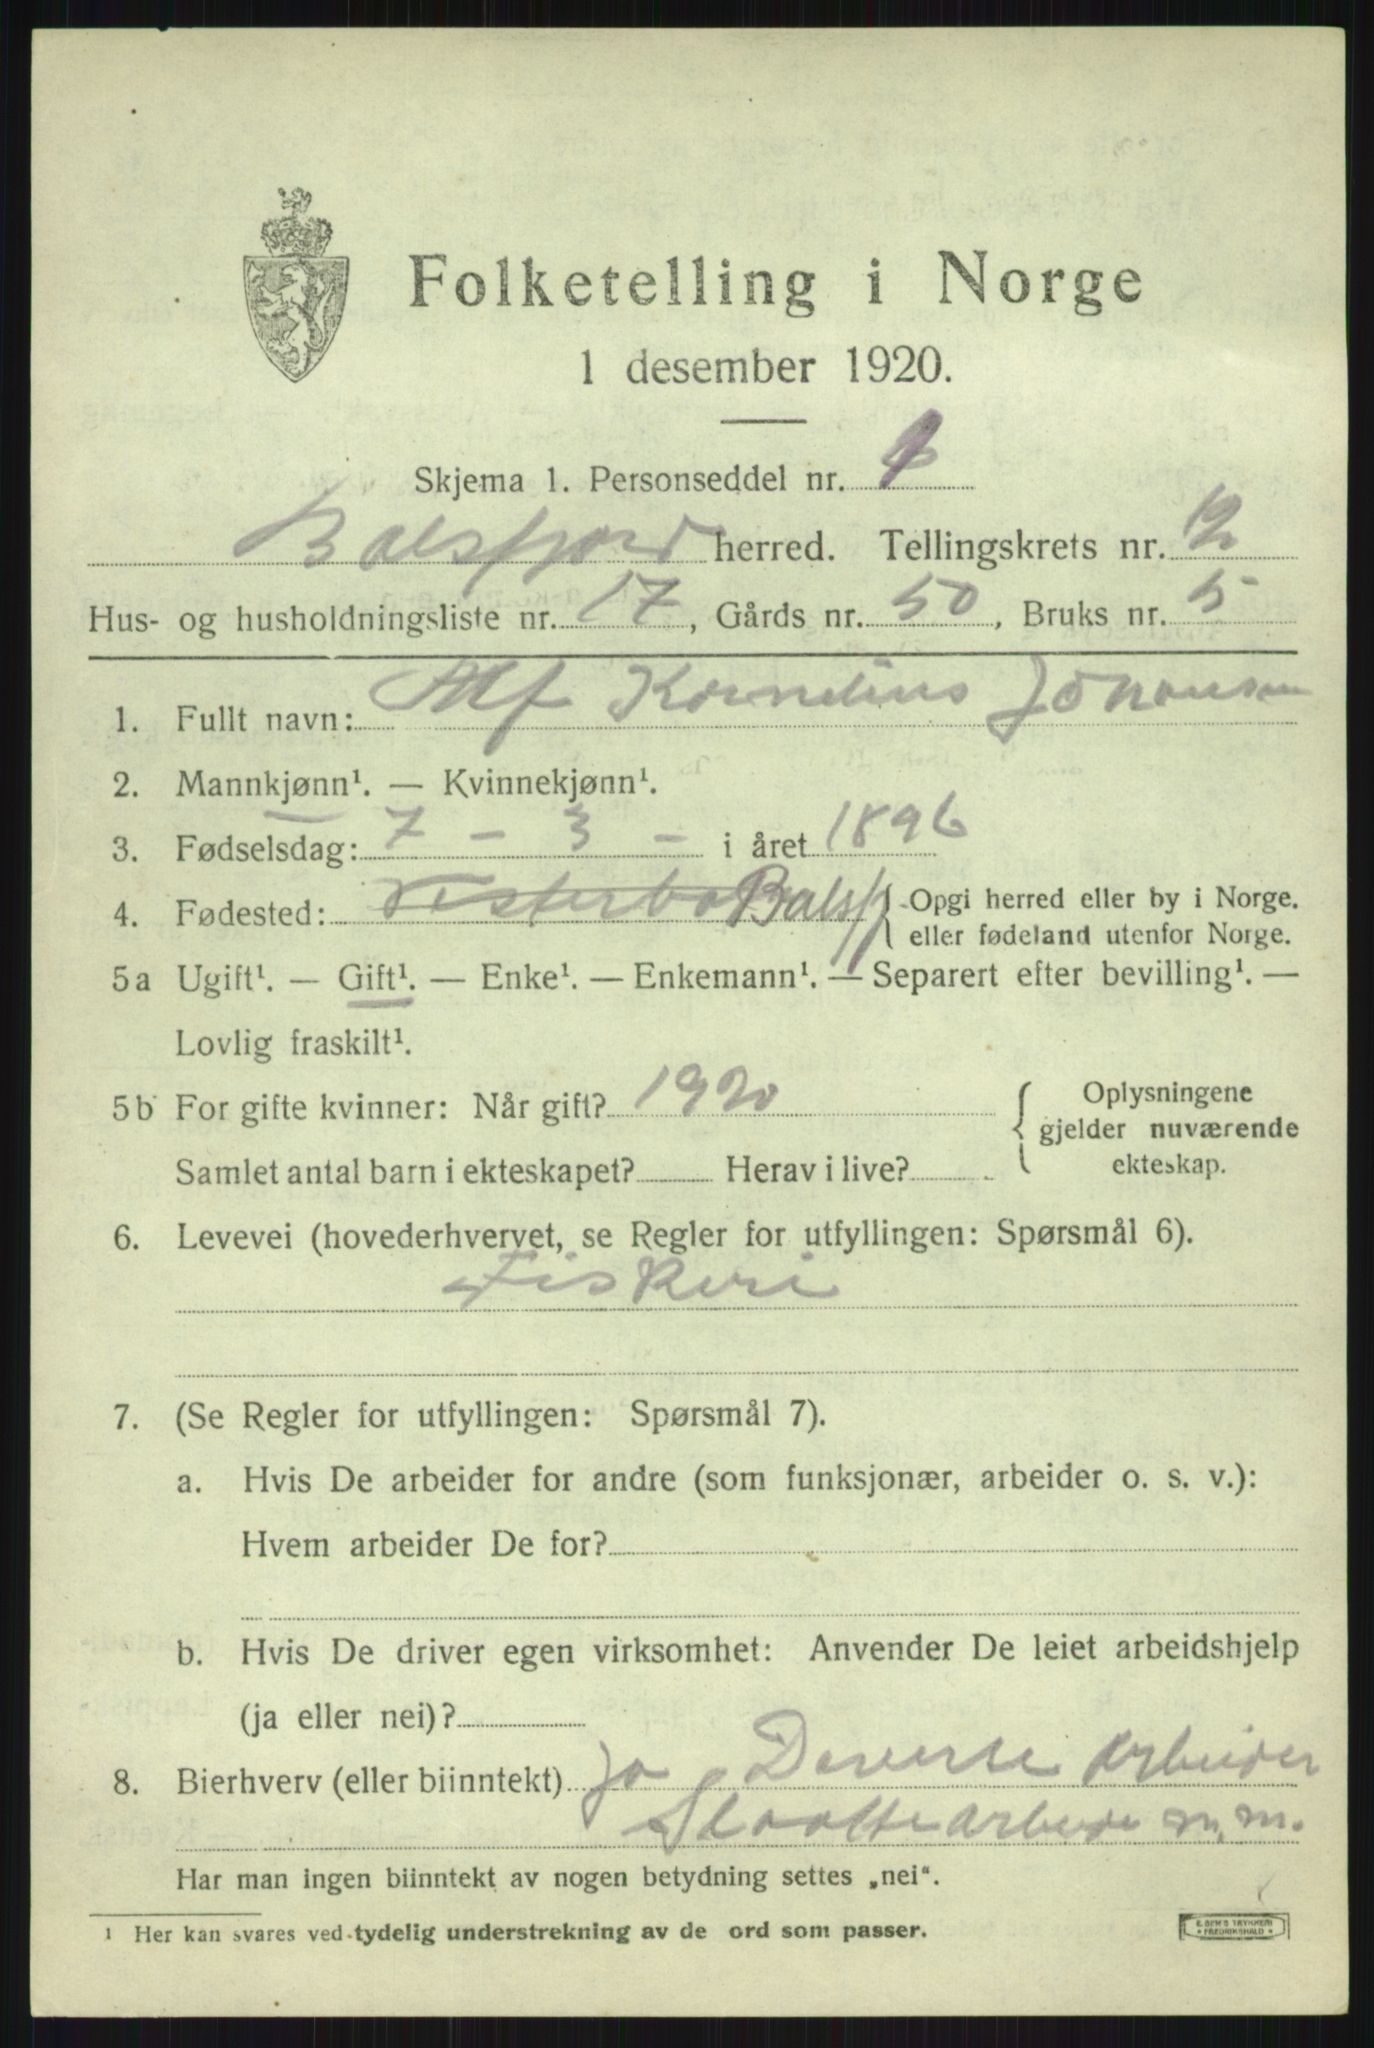 Folketelling i Norge
1 desember 1920.
Skjema 1. Personseddel nr.
Balsfjord herred. Tellingskrets nr. 12
Hus- og husholdningsliste nr. 17, Gårds nr. 50, Bruks nr. 5
1. Fullt navn: Alf Kornelius Johansen
2. Mannkjønn¹. — Kvinnekjønn¹.
3. Fødselsdag: 7 - 3 - i året 1896
4. Fødested: Balsfj Opgi herred eller by i Norge.
eller fødeland utenfor Norge.
5a Ugift¹. — Gift¹. — Enke¹. — Enkemann¹. — Separert efter bevilling¹. —
Lovlig fraskilt¹.
5b For gifte kvinner: Når gift? 1920
Samlet antal barn i ekteskapet? Herav i live?
Oplysningene
gjelder nuværende
ekteskap.
6. Levevei (hovederhvervet, se Regler for utfyllingen: Spørsmål 6).
Fiskeri
7. (Se Regler for utfyllingen: Spørsmål 7).
a. Hvis De arbeider for andre (som funksjonær, arbeider o. s. v.):
Hvem arbeider De for?
b. Hvis De driver egen virksomhet: Anvender De leiet arbeidshjelp
(ja eller nei)?
8. Bierhverv (eller biinntekt) Ja Deverse Arbeider
Slaattearbeide m.m.
Har man ingen biinntekt av nogen betydning settes „nei“.
1 Her kan svares ved tydelig understrekning av de ord som passer.